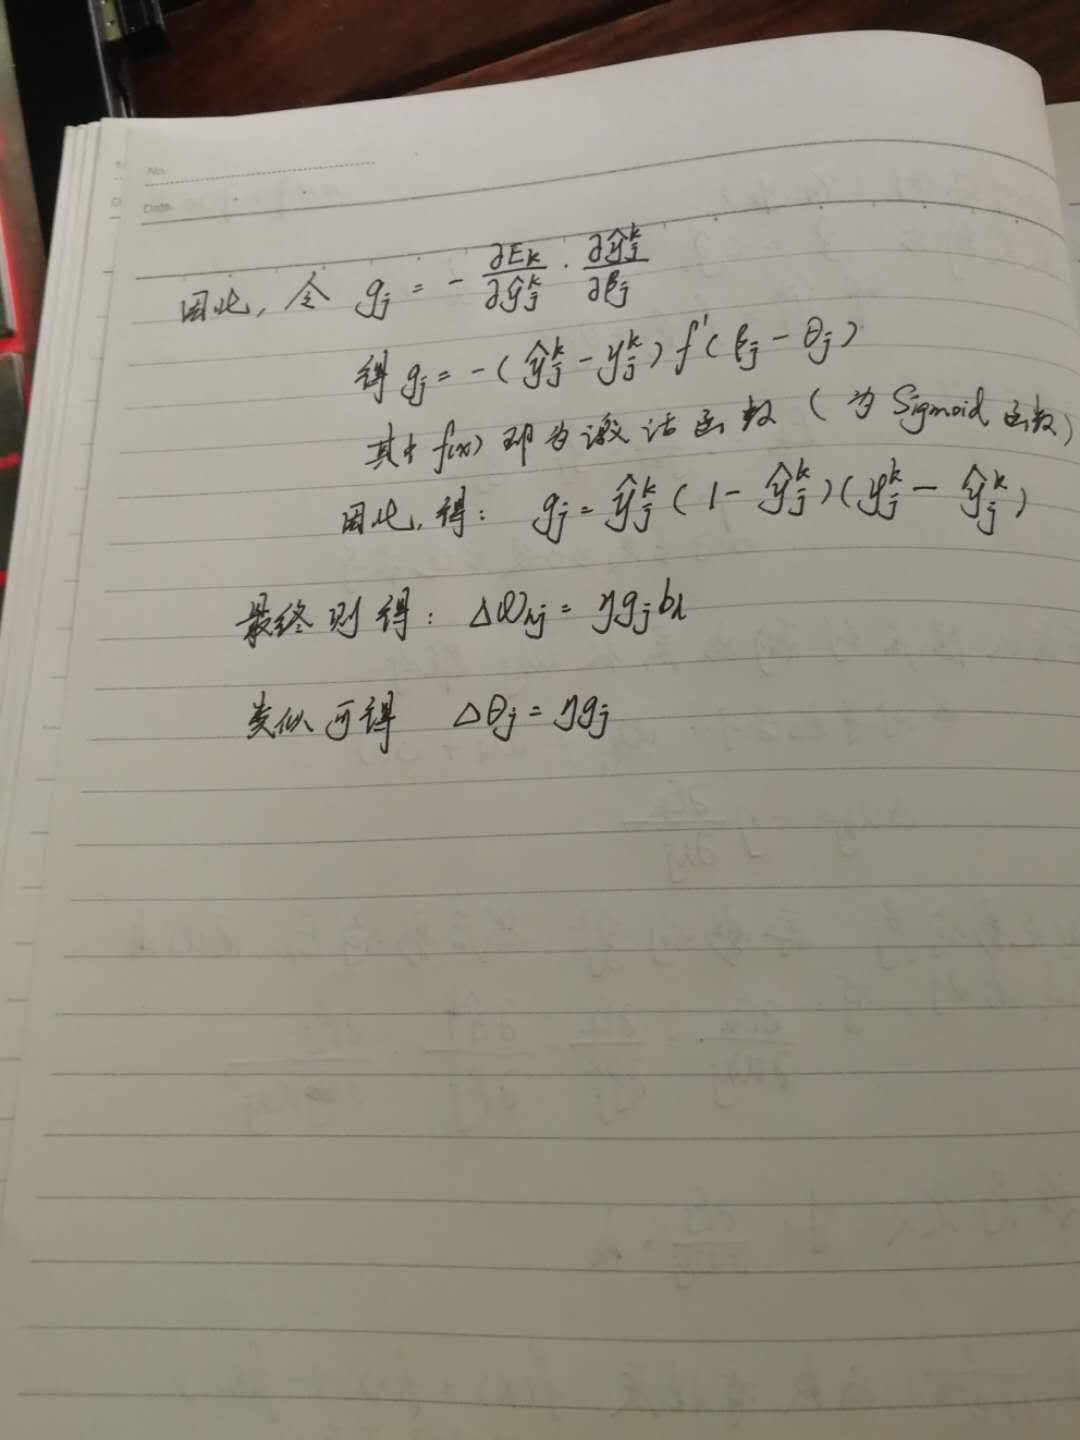 No.
Date
因此, 令 g_j = - ∂E_k/∂ŷ_j^k · ∂ŷ_j^k/∂β_j
得 g_j = -(ŷ_j^k - y_j^k) f'(β_j - θ_j)
其中 f(x) 即为激活函数 (为 Sigmoid 函数)
因此, 得: g_j = ŷ_j^k (1 - ŷ_j^k)(y_j^k - ŷ_j^k)
最终则得: Δω_hj = ηg_j b_h
类似可得 Δθ_j = ηg_j